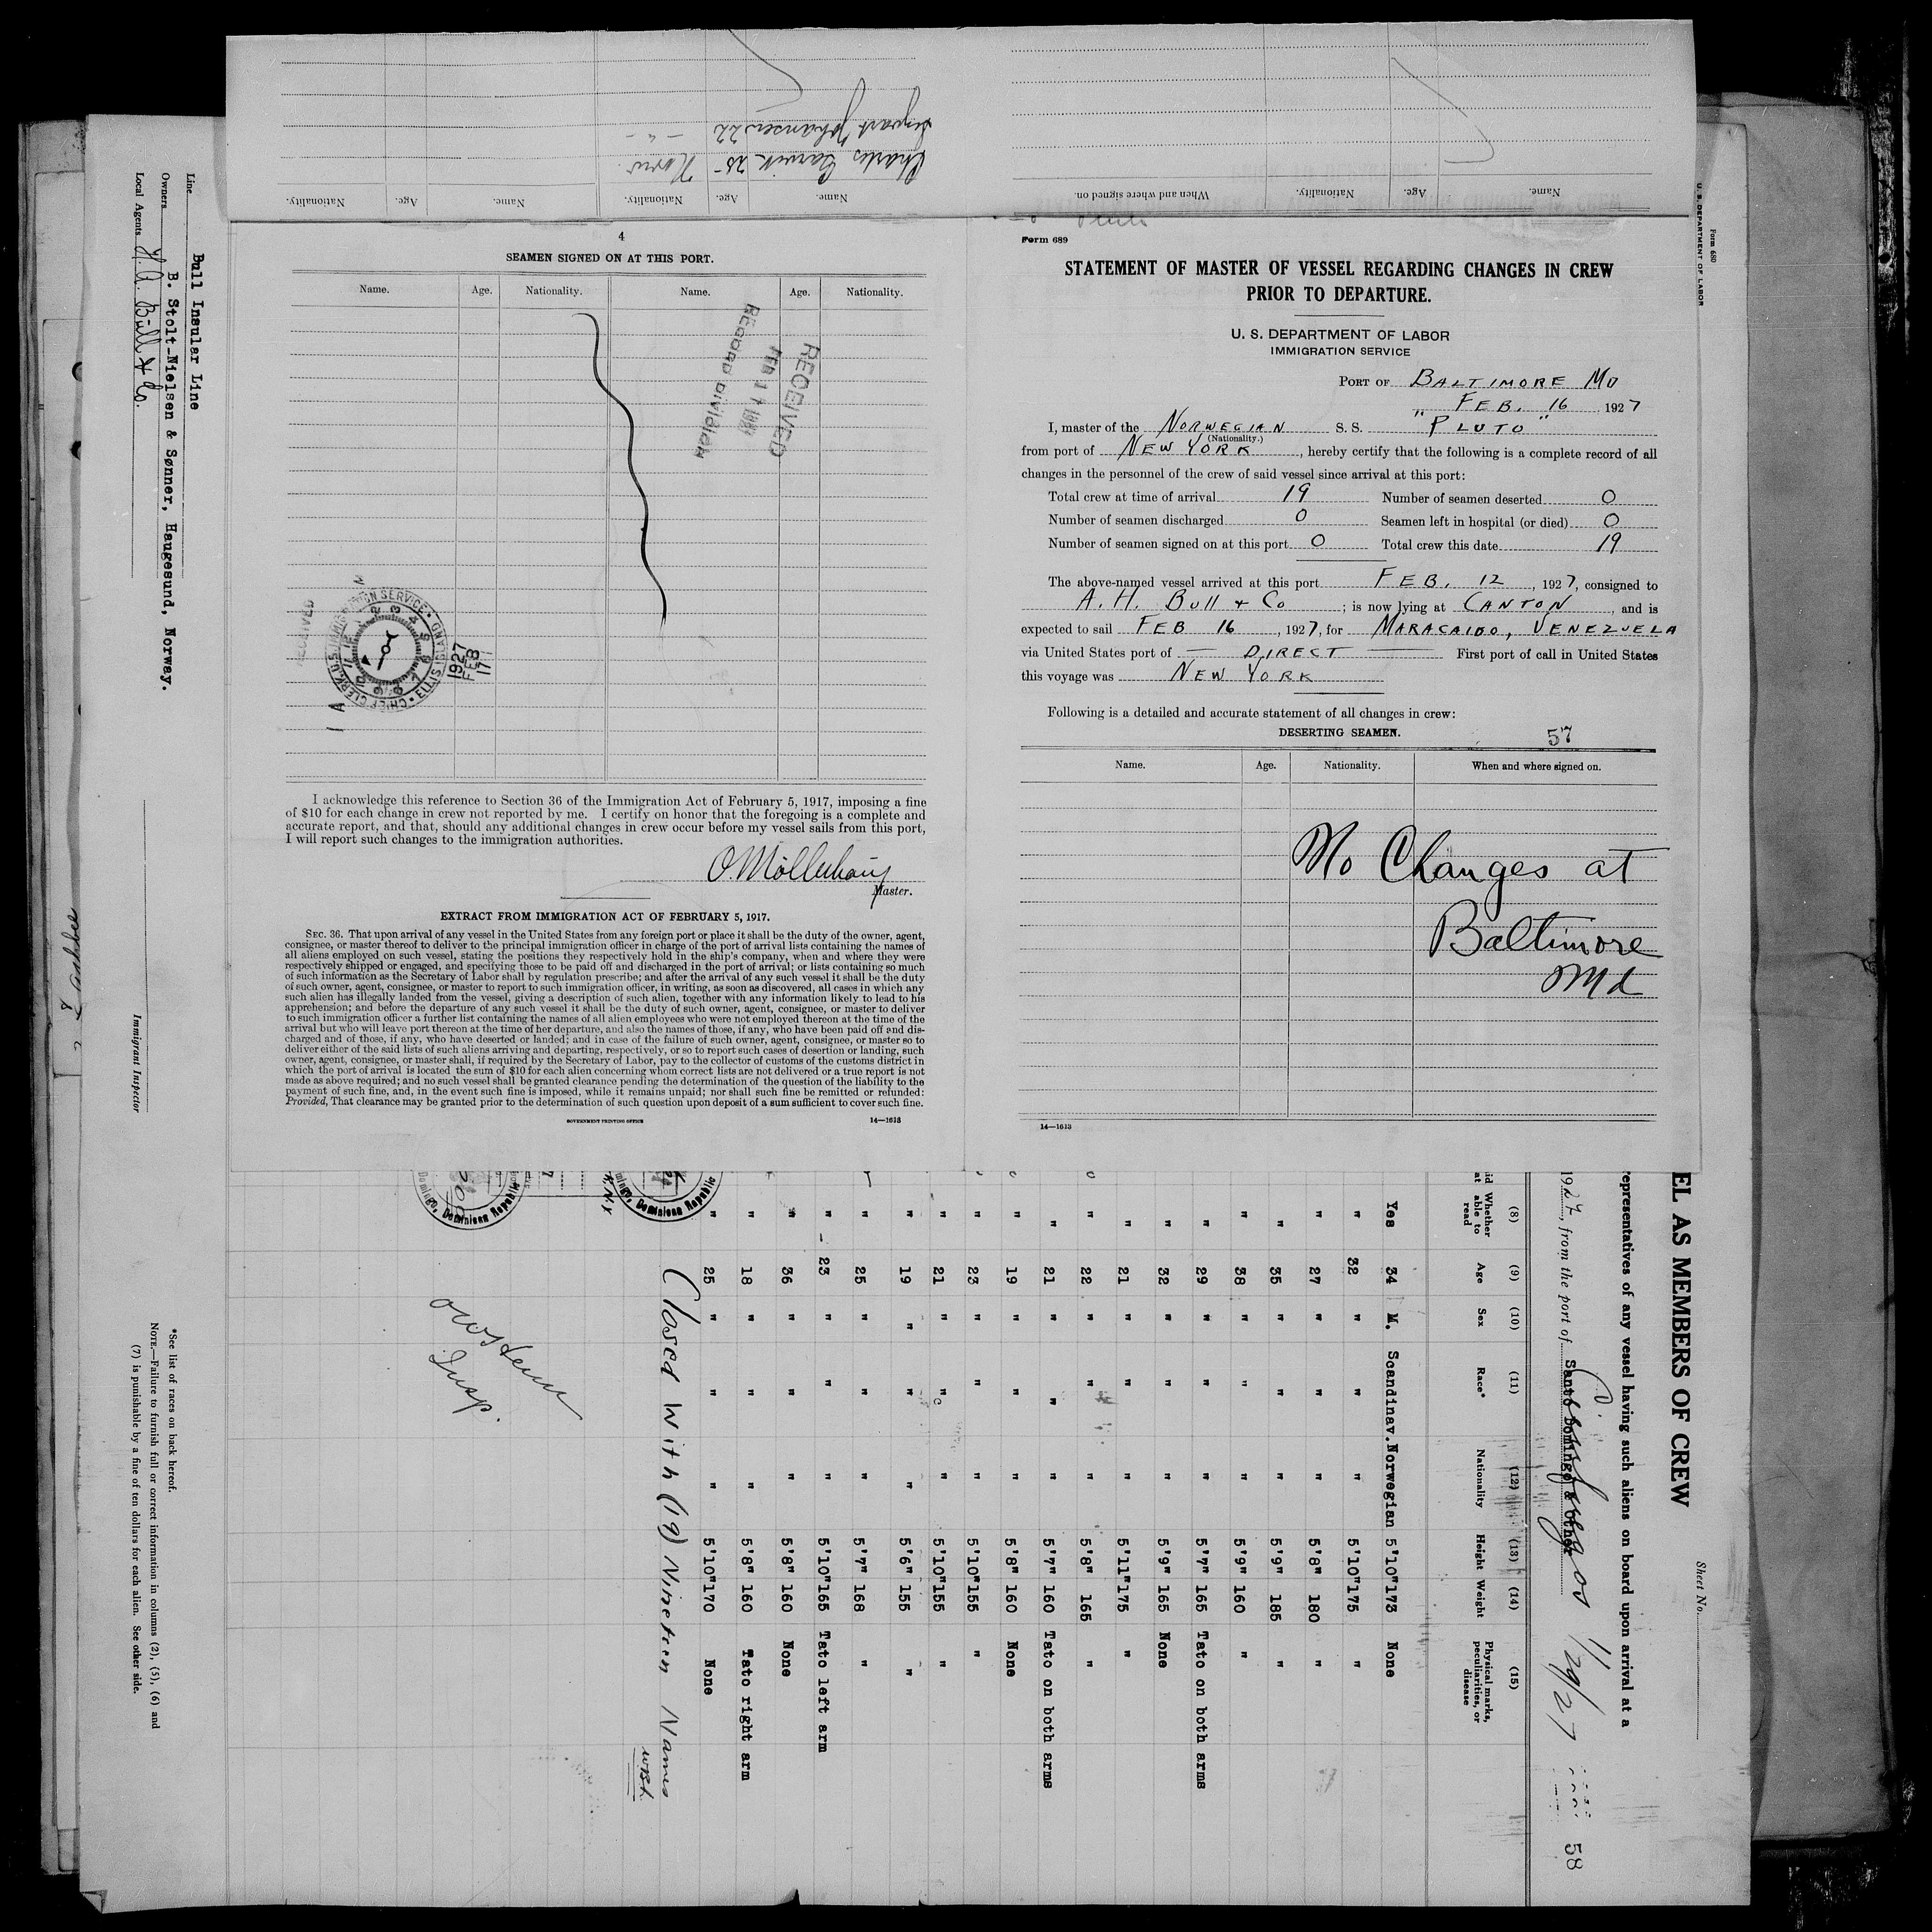 Name.
Age.
Nationality.
Name.
Age.
Nationality.
Charles
25
Norw
Johansen 22
Name.
Age.
Nationality.
When and where signed on.
4
SEAMEN SIGNED ON AT THIS PORT.
Name.
Age.
Nationality.
Name.
Age.
Nationality.
RECEIVED
FEB
RECORD DIVISION
RECEIVED
CHIEF CLERK, U.S. IMMIGRATION SERVICE · ELLIS ISLAND
1927
FEB
17
I acknowledge this reference to Section 36 of the Immigration Act of February 5, 1917, imposing a fine
of $10 for each change in crew not reported by me. I certify on honor that the foregoing is a complete and
accurate report, and that, should any additional changes in crew occur before my vessel sails from this port,
I will report such changes to the immigration authorities.
Master.
EXTRACT FROM IMMIGRATION ACT OF FEBRUARY 5, 1917.
SEC. 36. That upon arrival of any vessel in the United States from any foreign port or place it shall be the duty of the owner, agent,
consignee, or master thereof to deliver to the principal immigration officer in charge of the port of arrival lists containing the names of
all aliens employed on such vessel, stating the positions they respectively hold in the ship's company, when and where they were
respectively shipped or engaged, and specifying those to be paid off and discharged in the port of arrival; or lists containing so much
of such information as the Secretary of Labor shall by regulation prescribe; and after the arrival of any such vessel it shall be the duty
of such owner, agent, consignee, or master to report to such immigration officer, in writing, as soon as discovered, all cases in which any
such alien has illegally landed from the vessel, giving a description of such alien, together with any information likely to lead to his
apprehension; and before the departure of any such vessel it shall be the duty of such owner, agent, consignee, or master to deliver
to such immigration officer a further list containing the names of all alien employees who were not employed thereon at the time of the
arrival but who will leave port thereon at the time of her departure, and also the names of those, if any, who have been paid off and dis-
charged and of those, if any, who have deserted or landed; and in case of the failure of such owner, agent, consignee, or master so to
deliver either of the said lists of such aliens arriving and departing, respectively, or so to report such cases of desertion or landing, such
owner, agent, consignee, or master shall, if required by the Secretary of Labor, pay to the collector of customs of the customs district in
which the port of arrival is located the sum of $10 for each alien concerning whom correct lists are not delivered or a true report is not
made as above required; and no such vessel shall be granted clearance pending the determination of the question of the liability to the
payment of such fine, and, in the event such fine is imposed, while it remains unpaid; nor shall such fine be remitted or refunded:
Provided, That clearance may be granted prior to the determination of such question upon deposit of a sum sufficient to cover such fine.
GOVERNMENT PRINTING OFFICE
14—1613
Form 689
STATEMENT OF MASTER OF VESSEL REGARDING CHANGES IN CREW
PRIOR TO DEPARTURE.
U. S. DEPARTMENT OF LABOR
IMMIGRATION SERVICE
PORT OF BALTIMORE MD
FEB. 16 1927
I, master of the NORWEGIAN S. S. "PLUTO"
(Nationality.)
from port of NEW YORK, hereby certify that the following is a complete record of all
changes in the personnel of the crew of said vessel since arrival at this port:
Total crew at time of arrival 19 Number of seamen deserted 0
Number of seamen discharged 0 Seamen left in hospital (or died) 0
Number of seamen signed on at this port 0 Total crew this date 19
The above-named vessel arrived at this port FEB. 12, 1927, consigned to
A. H. Bull + Co; is now lying at CANTON, and is
expected to sail FEB 16, 1927, for MARACAIBO, VENEZUELA
via United States port of — DIRECT — First port of call in United States
this voyage was NEW YORK
Following is a detailed and accurate statement of all changes in crew:
DESERTING SEAMEN.
57
Name.
Age.
Nationality.
When and where signed on.
No Changes at
Baltimore
Md
14—1613
Form 680
U. S. DEPARTMENT OF LABOR
Sheet No.
EL AS MEMBERS OF CREW
epresentatives of any vessel having such aliens on board upon arrival at a
1927, from the port of Santo Domingo & other
Cienfuegos 1/29/27
58
(8) (9) (10) (11) (12) (13) (14) (15)
Whether able to read
Age
Sex
Race*
Nationality
Height
Weight
Physical marks, peculiarities, or disease
Yes 34 M. Scandinav. Norwegian 5'10" 173 None
" 32 " " " 5'10" 175 "
" 27 " " " 5'8" 180 "
" 35 " " " 5'9" 185 "
" 38 " " " 5'9" 160 "
" 29 " " " 5'7" 165 Tato on both arms
" 32 " " " 5'9" 165 None
" 21 " " " 5'11" 175 "
" 22 " " " 5'8" 165 "
" 21 " " " 5'7" 160 Tato on both arms
" 19 " " " 5'8" 160 None
" 23 " " " 5'10" 155 "
" 21 " " " 5'10" 155 "
" 19 " " " 5'6" 155 "
" 25 " " " 5'7" 168 "
" 23 " " " 5'10" 165 Tato left arm
" 36 " " " 5'8" 160 None
" 18 " " " 5'8" 160 Tato right arm
" 25 " " " 5'10" 170 None
Closed with (19) Nineteen Names
Domingo, Dominican Republic
Domingo, Dominican Republic
Insp.
Line Bull Insular Line
Owners B. Stolt-Nielsen & Sønner, Haugesund. Norway.
Local Agents A. Bull & Co.
Immigrant Inspector
*See list of races on back hereof.
NOTE.—Failure to furnish full or correct information in columns (2), (5), (6) and
(7) is punishable by a fine of ten dollars for each alien. See other side.